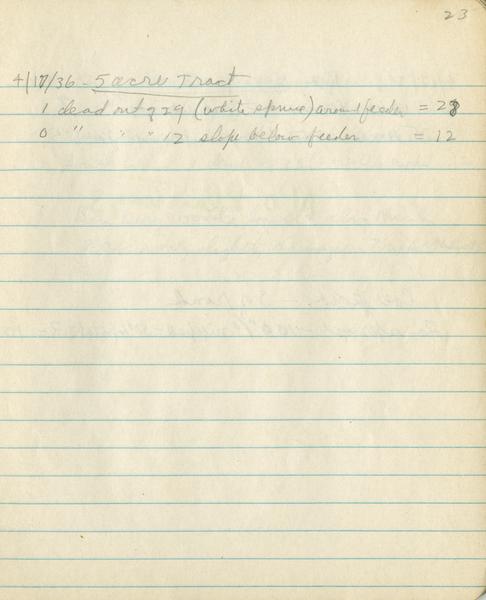 23
4/17/36 - 5 acre Tract
1 dead out of 29 (white spruce) around feeder = 28
0 " " " 12 slope below feeder = 12